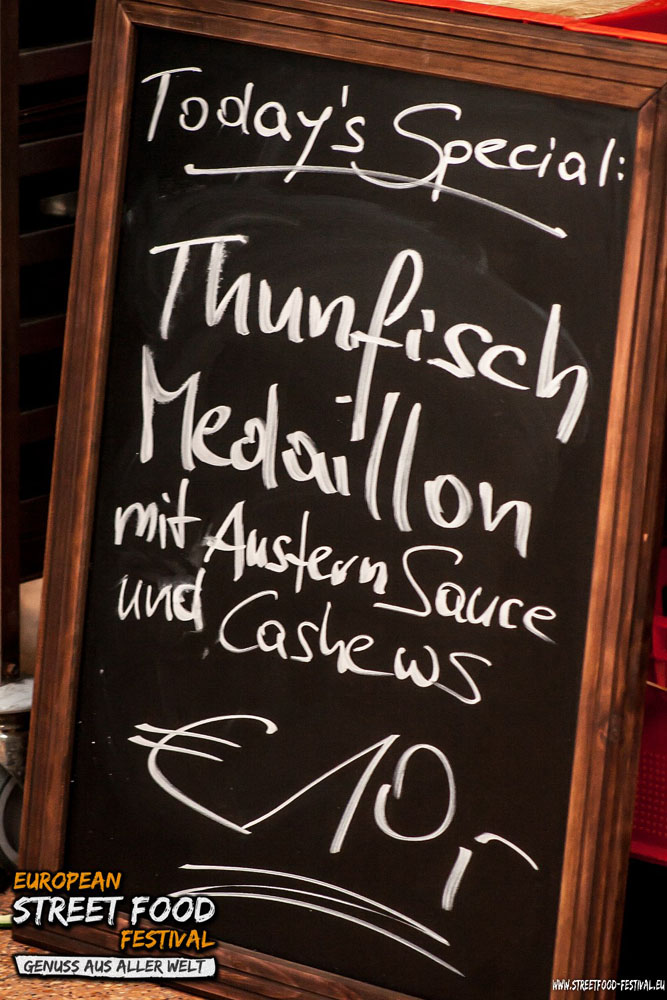 Today's Special:
Thunfisch
Medaillon
mit Austern Sauce
und Cashews
€ 10,-
EUROPEAN
STREET FOOD
FESTIVAL
GENUSS AUS ALLER WELT
WWW.STREETFOOD-FESTIVAL.EU